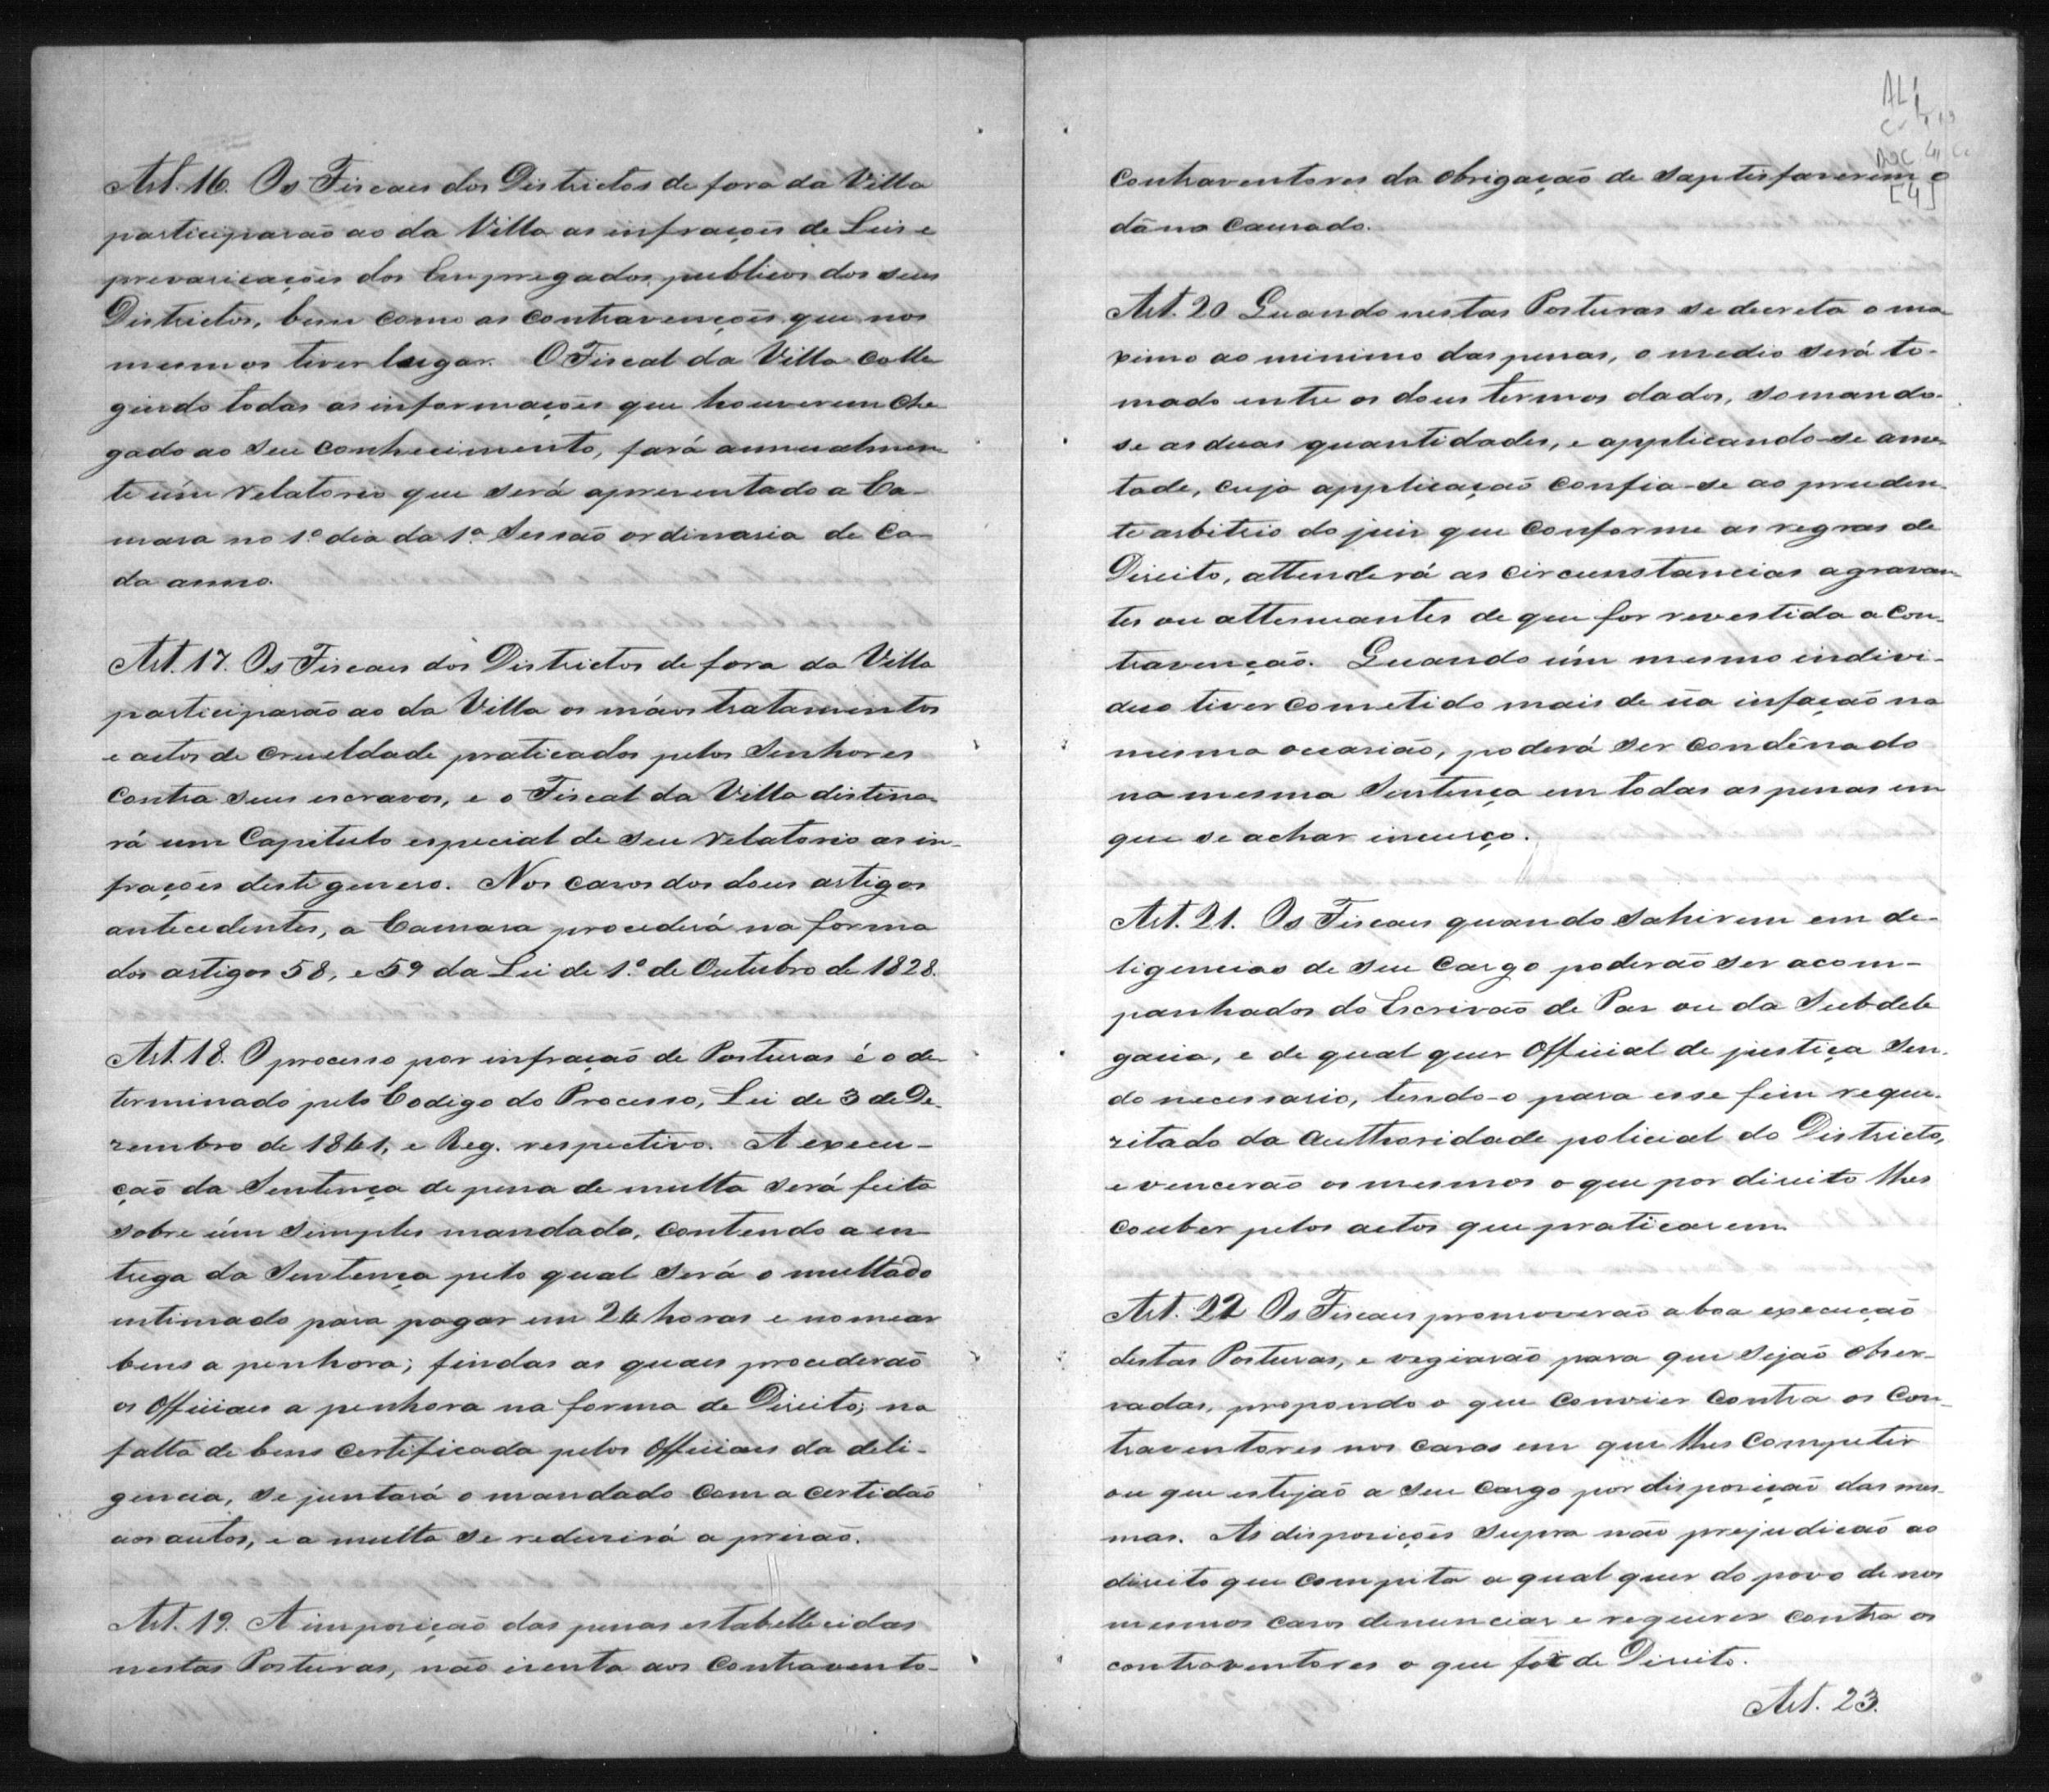 Art. 16. Os Fiscaes dos Districtos de fora da Villa
participarão ao da Villa as infrações de Leis e
prevaricações dos Empregados publicos dos seus
Districtos, bem como as contravenções que nos
mesmos tiver lugar. O Fiscal da Villa colle
gindo todas as informações que houverem che
gado ao seu conhecimento, fará annualmen
te úm relatorio que será apresentado a Ca-
mara no 1º dia da 1ª Sessão ordinaria de Ca-
da anno.
Art. 17. Os Fiscaes dos Districtos de fora da Villa
participarão ao da Villa os máos tratamentos
e actos de crueldade praticados pelos Senhores
contra seus escravos, e o Fiscal da Villa distina
rá um Capitulo especial de seu relatorio as in-
frações deste genero. Nos casos dos dous artigos
antecedentes, a Camara procederá na forma
dos artigos 58, e 59 da Lei de 1º de Outubro de 1828.
Art. 18. O processo por infração de Posturas é o de-
terminado pelo Codigo do Processo, Lei de 3 de De-
zembro de 1841, e Reg. respectivo. A execu-
ção da Sentença de pena de multa será feita
sobre úm simples mandado, contendo a en
trega da Sentença pelo qual será o multado
intimado para pagar em 24 horas e nomear
bens a penhora; findas as quaes procederão
os Officiaes a penhora na forma de Direito; na
falta de bens certificada pelos Officiaes da deli-
gencia, se juntará o mandado com a certidão
aos autos, e a multa se redusirá a prisão.
Art. 19. A imposição das penas estabellecidas
nestas Posturas, não isenta aos Contravento-
AL1
DOC
[4]
contraventores da obrigação de saptisfazerem o
dãno causado.
Art. 20 Quando nestas Posturas se decreta o ma
ximo ao minimo das penas, o medio será to-
mado entre os dous termos dados, somando-
se as duas quantidades, e applicando-se a me-
tade, cuja applicação confia-se ao pruden
te arbitrio do juis que conforme as regras de
Direito, attenderá as circunstancias agravan-
tes ou attenuantes de que for revestida a con-
travenção. Quando úm mesmo indivi-
duo tiver cometido mais de ũa infação na
mesma occasião, poderá ser condēnado
na mesma Sentença em todas as penas em
que se achar incurço.
Art. 21. Os Fiscaes quando sahirem em de-
ligencias de seu cargo poderão ser acom-
panhados do Escrivão de Pas ou da Subdele
gacia, e de qual quer Official de justiça sen-
do necessario, tendo-o para esse fim reque-
zitado da Authoridade policial do Districto,
e vencerão os mesmos o que por direito lhes
couber pelos actos que praticarem.
Art. 22 Os Fiscaes promoverão a boa execução
destas Posturas, e vegiarão para que sejão obser-
vadas, propondo o que convier contra os Con-
traventores nos casos em que lhes competir
ou que estejão a seu cargo por disposição das mes-
mas. As disposições supra não prejudicão ao
direito que compita a qual quer do povo de nos
mesmos casos denunciar e requerer contra os
contraventores o que for de Direito.
Art. 23.